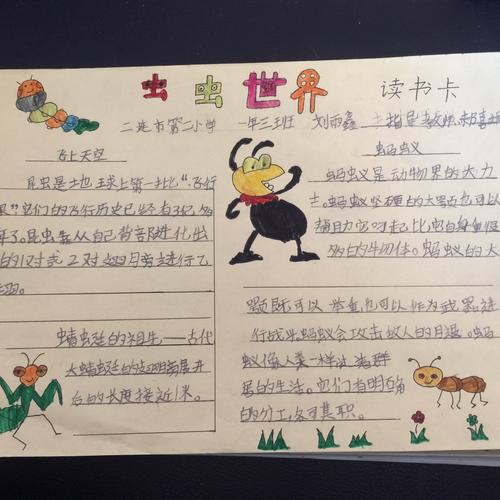 虫虫世界 读书卡
二连市第二小学 一年三班 刘雨鑫 指导教师
飞上天空
昆虫是地球上第一批“飞行
它们的飞行历史已经有3亿多
年了。昆虫靠从自己背部进化出
的1对或2对翅膀进行飞
蜻蜓的祖先——古代
大蜻蜓的翅膀展开
后的长度接近1米。
蚂蚁
蚂蚁是动物界的大力
士。蚂蚁坚硬的大颚也可以
帮助它叼起比自身重很
多的生物体。蚂蚁的大
颚既可以举重也可以作为武器进
行战斗蚂蚁会攻击敌人的月退。蚂
蚁像人类一样过着群
居的生活。它们有明确
的分工,各司其职。